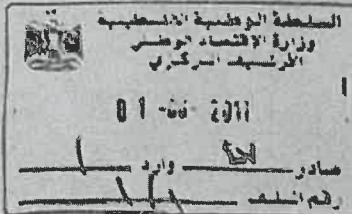 السلطة الوطنية الفلسطينية
وزارة الاقتصاد الوطني
الأرشيف المركزي
2011
صادر وارد
رقم الملف